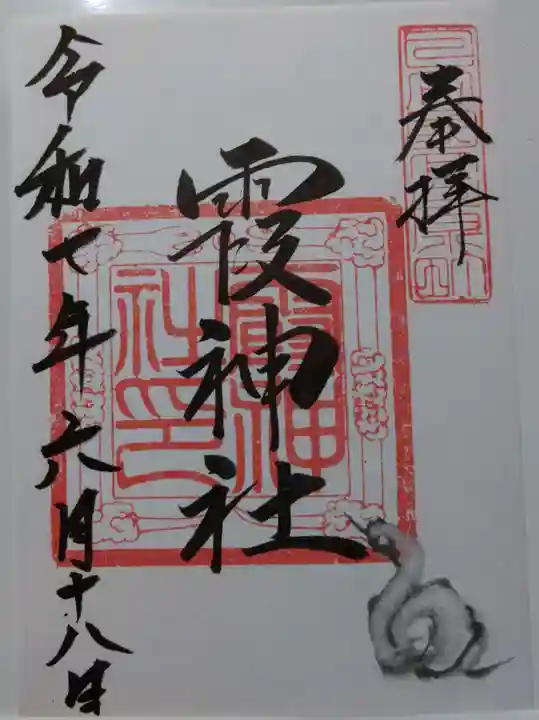 奉拝
霞神社
霞神社印
令和七年六月十八日